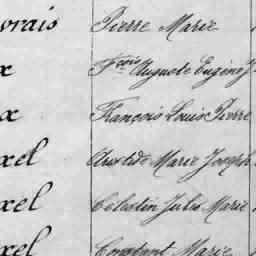 vrais Pierre Marie
x Frçois Auguste Eugène J
x François Louis Pierre
xel Aristide Marie Joseph
xel Célestin Jules Marie
xel Constant Marie